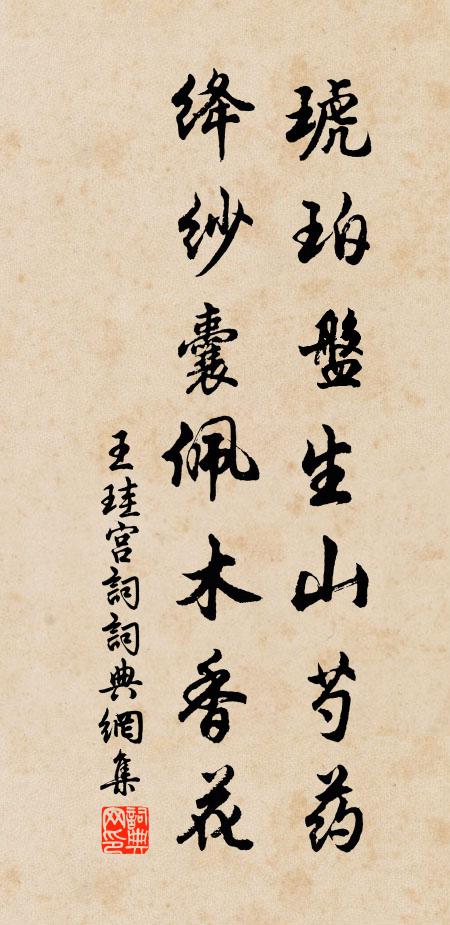 琥珀盤生山芍药
绛纱囊佩木香花
王珪宫詞詞典網集
詞典网印